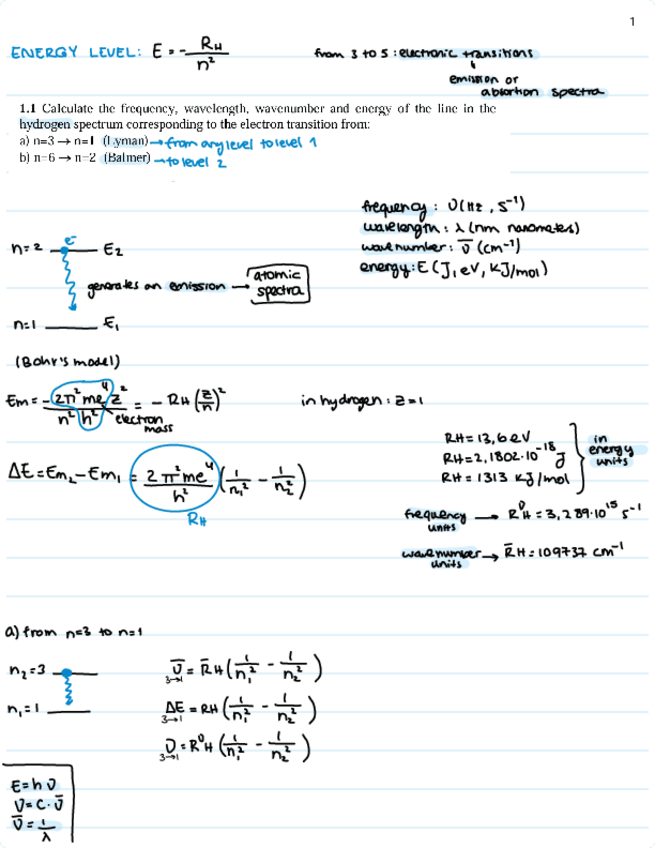 1
ENERGY LEVEL: E = - RH/n²
from 3 to 5 : electronic transitions
emission or
absortion spectra
1.1 Calculate the frequency, wavelength, wavenumber and energy of the line in the
hydrogen spectrum corresponding to the electron transition from:
a) n=3 → n=1 (Lyman) → from any level to level 1
b) n=6 → n=2 (Balmer) → to level 2
frequency : ν (Hz, s⁻¹)
wavelength : λ (nm nanometers)
wavenumber : ν̄ (cm⁻¹)
energy : E (J, eV, kJ/mol)
n=2 e⁻ E₂
generates an emission → atomic spectra
n=1 E₁
(Bohr's model)
Em = - 2π²me⁴z²/n²h² = - RH (z/n)²
in hydrogen : z=1
electron
mass
RH = 13,6 eV
RH = 2,1802·10⁻¹⁸ J
RH = 1313 kJ/mol
in
energy
units
ΔE = Em₂ - Em₁ = 2π²me⁴/h² (1/n₁² - 1/n₂²)
RH
frequency units → RᵛH = 3,289·10¹⁵ s⁻¹
wavenumber units → R̄H = 109737 cm⁻¹
a) from n=3 to n=1
n₂=3
n₁=1
ν̄ 3→1 = R̄H (1/n₁² - 1/n₂²)
ΔE 3→1 = RH (1/n₁² - 1/n₂²)
ν 3→1 = RᵛH (1/n₁² - 1/n₂²)
E = hν
ν = c·ν̄
ν̄ = 1/λ